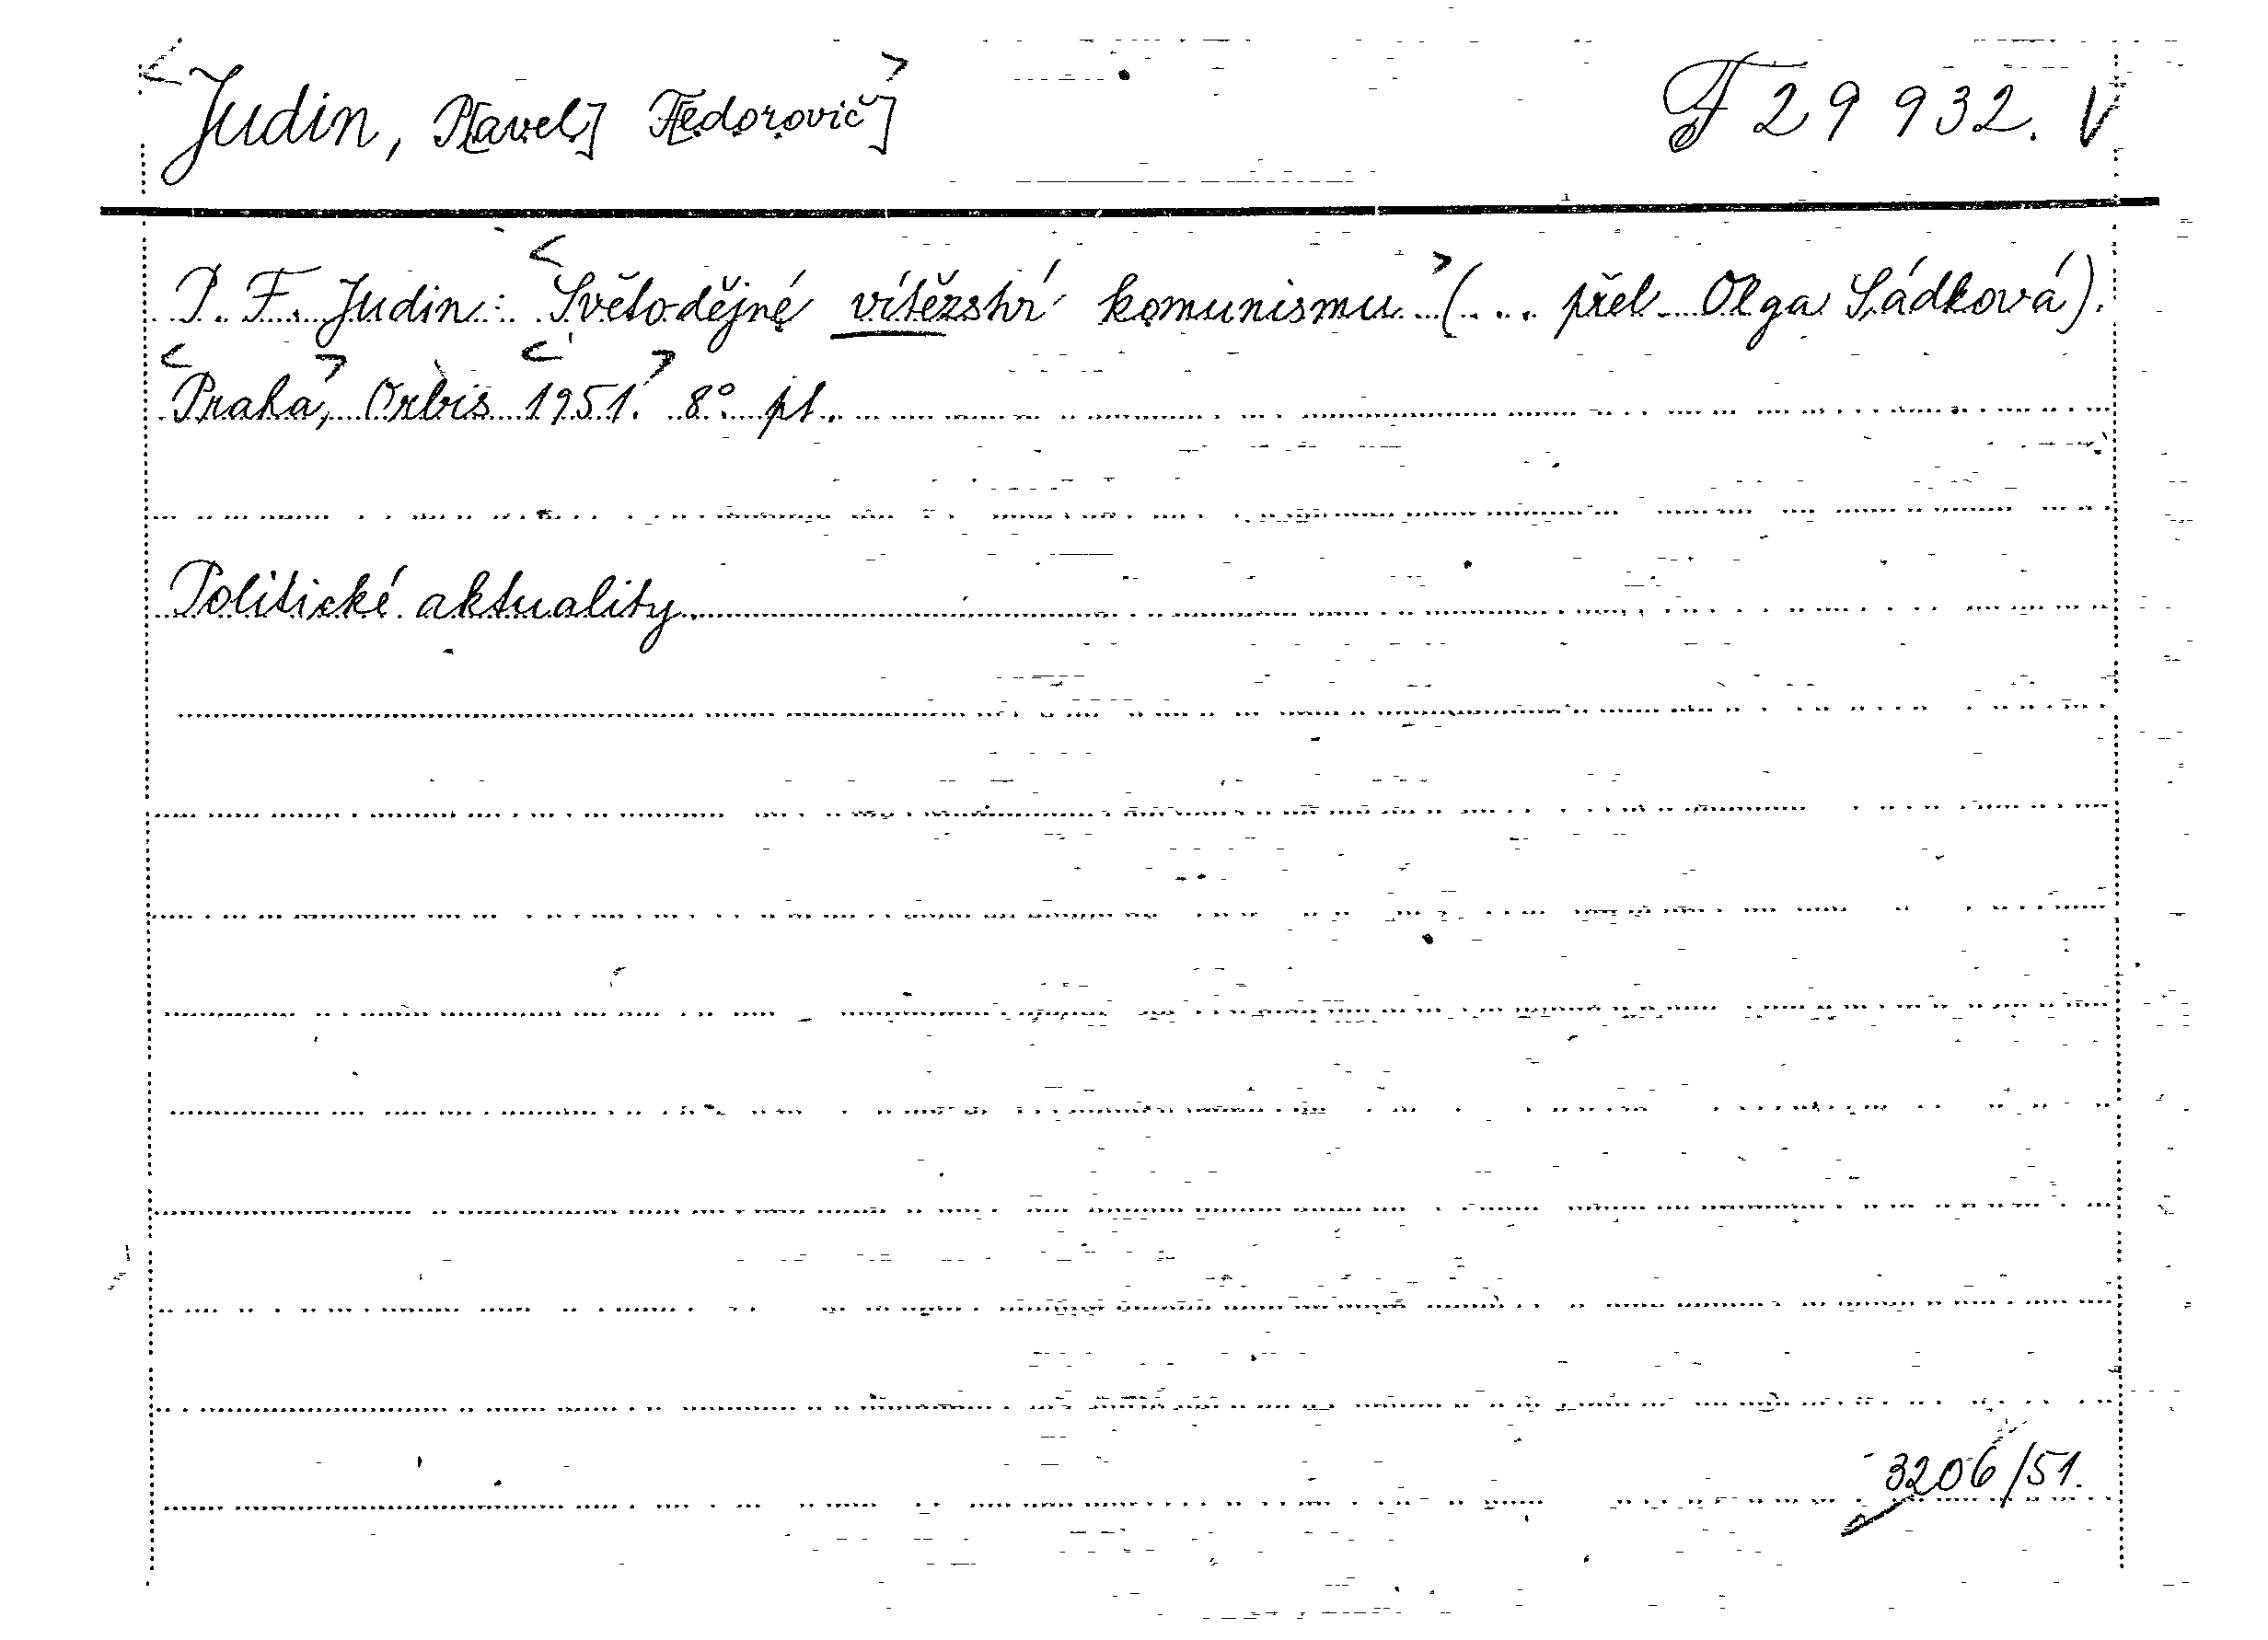 <Judin, P[avel] F[edorovič]> F 29 932. V
P. F. Judin: <Světodějné vítězství komunismu> (... přel. Olga Sádková).
<Praha>, Orbis <1951.> 8°. pt.
Politické aktuality
3206/51.